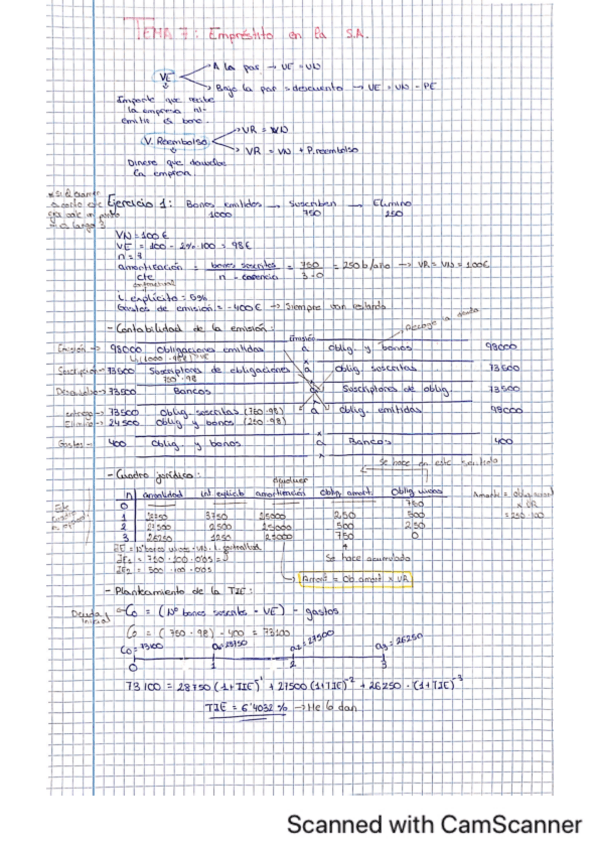 TEMA 7: Empréstito en la S.A.
VE
A la par → VE = VN
Bajo la par = descuento → VE = VN - PE
Importe que recibe
la empresa al
emitir el bono.
V. Reembolso
VR = VN
VR = VN + P.reembolso
Dinero que devuelve
la empresa
Ejercicio 1: Bonos emitidos → Suscriben → Elimino
1000 750 250
VN = 100€
VE = 100 - 2%·100 = 98€
n = 3
amortización = bonos suscritos / n - carencia = 750 / 3-0 = 250 b/año → VR = VN = 100€
cte
i. explícito = 5%
Gastos de emisión = -400€ → Siempre van restando
- Contabilidad de la emisión:
Emisión → 98000 Obligaciones emitidas a Oblig y bonos 98000
(1000·98)
Suscripción → 73500 Suscriptores de obligaciones a Oblig suscritas 73500
750·98
73500 Bancos a Suscriptores de oblig. 73500
73500 Oblig. suscritas (750·98) a Oblig emitidas 98000
24500 Oblig y bonos (250·98)
Gastos → 400 Oblig. y bonos a Bancos 400
- Cuadro jurídico:
Se hace en este sentido
n anualidad int explícito amortización oblig amort. Oblig vivas
0 750
1 28750 3750 25000 250 500
2 27500 2500 25000 500 250
3 26250 1250 25000 750 0
IE1 = 750·100·0'05 =
IE2 = 500·100·0'05
Se hace acumulado
Amort = Ob. amort x VR
- Planteamiento de la TIE:
Deuda inicial
Co = (Nº bonos suscritos · VE) - gastos
Co = (750·98) - 400 = 73100
Co = 73100 a1 = 28750 a2 = 27500 a3 = 26250
0 1 2 3
73100 = 28750 (1+TIE)⁻¹ + 27500 (1+TIE)⁻² + 26250 · (1+TIE)⁻³
TIE = 6'4032 % → Me lo dan
Scanned with CamScanner